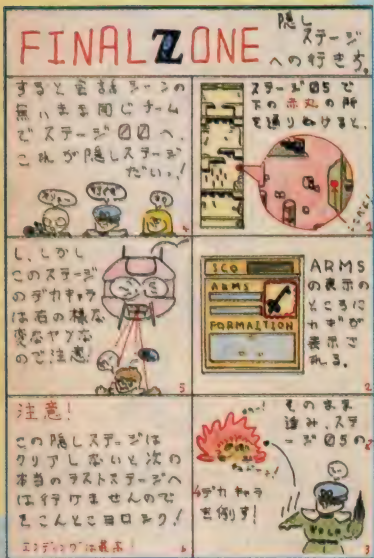 FINAL ZONE
隠し
ステージ
への行き方。
ステージ05で
下の赤丸の所
を通りぬけると、
ここだ!
1
SCO
ARMS
FORMAITION
ARMS
の表示の
ところに
カギが
表示さ
れる。
2
そのまま
進み、ステ
ージ05の
デカキャラ
を倒す!
3
すると会話シーンの
無いまま同じチーム
でステージ00へ。
これが隠しステージ
だいっ!
4
し、しかし
このステージ
のデカキャラ
は右の様な
変なヤツな
ので注意!
5
注意!
この隠しステージは
クリアしないと次の
本当のラストステージへ
は行けませんので
そこんとこヨロシク!
エンディングは最高!
6